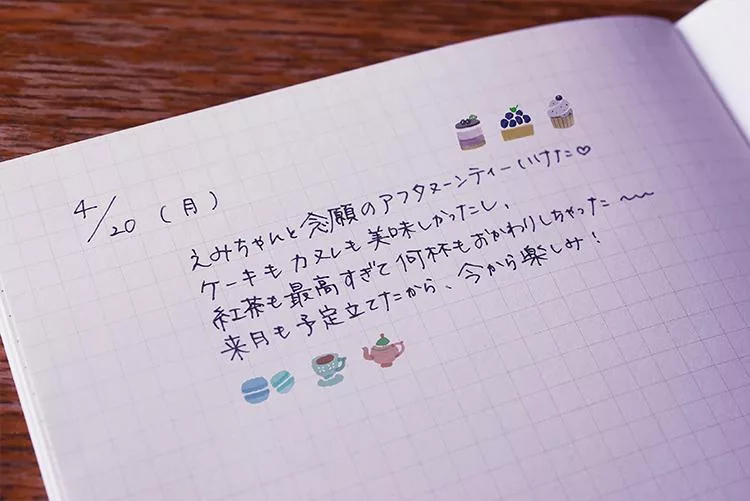 4/20（月）
えみちゃんと念願のアフタヌーンティーいけた♡
ケーキもカヌレも美味しかったし、
紅茶も最高すぎて何杯もおかわりしちゃった〜〜
来月も予定立てたから、今から楽しみ！